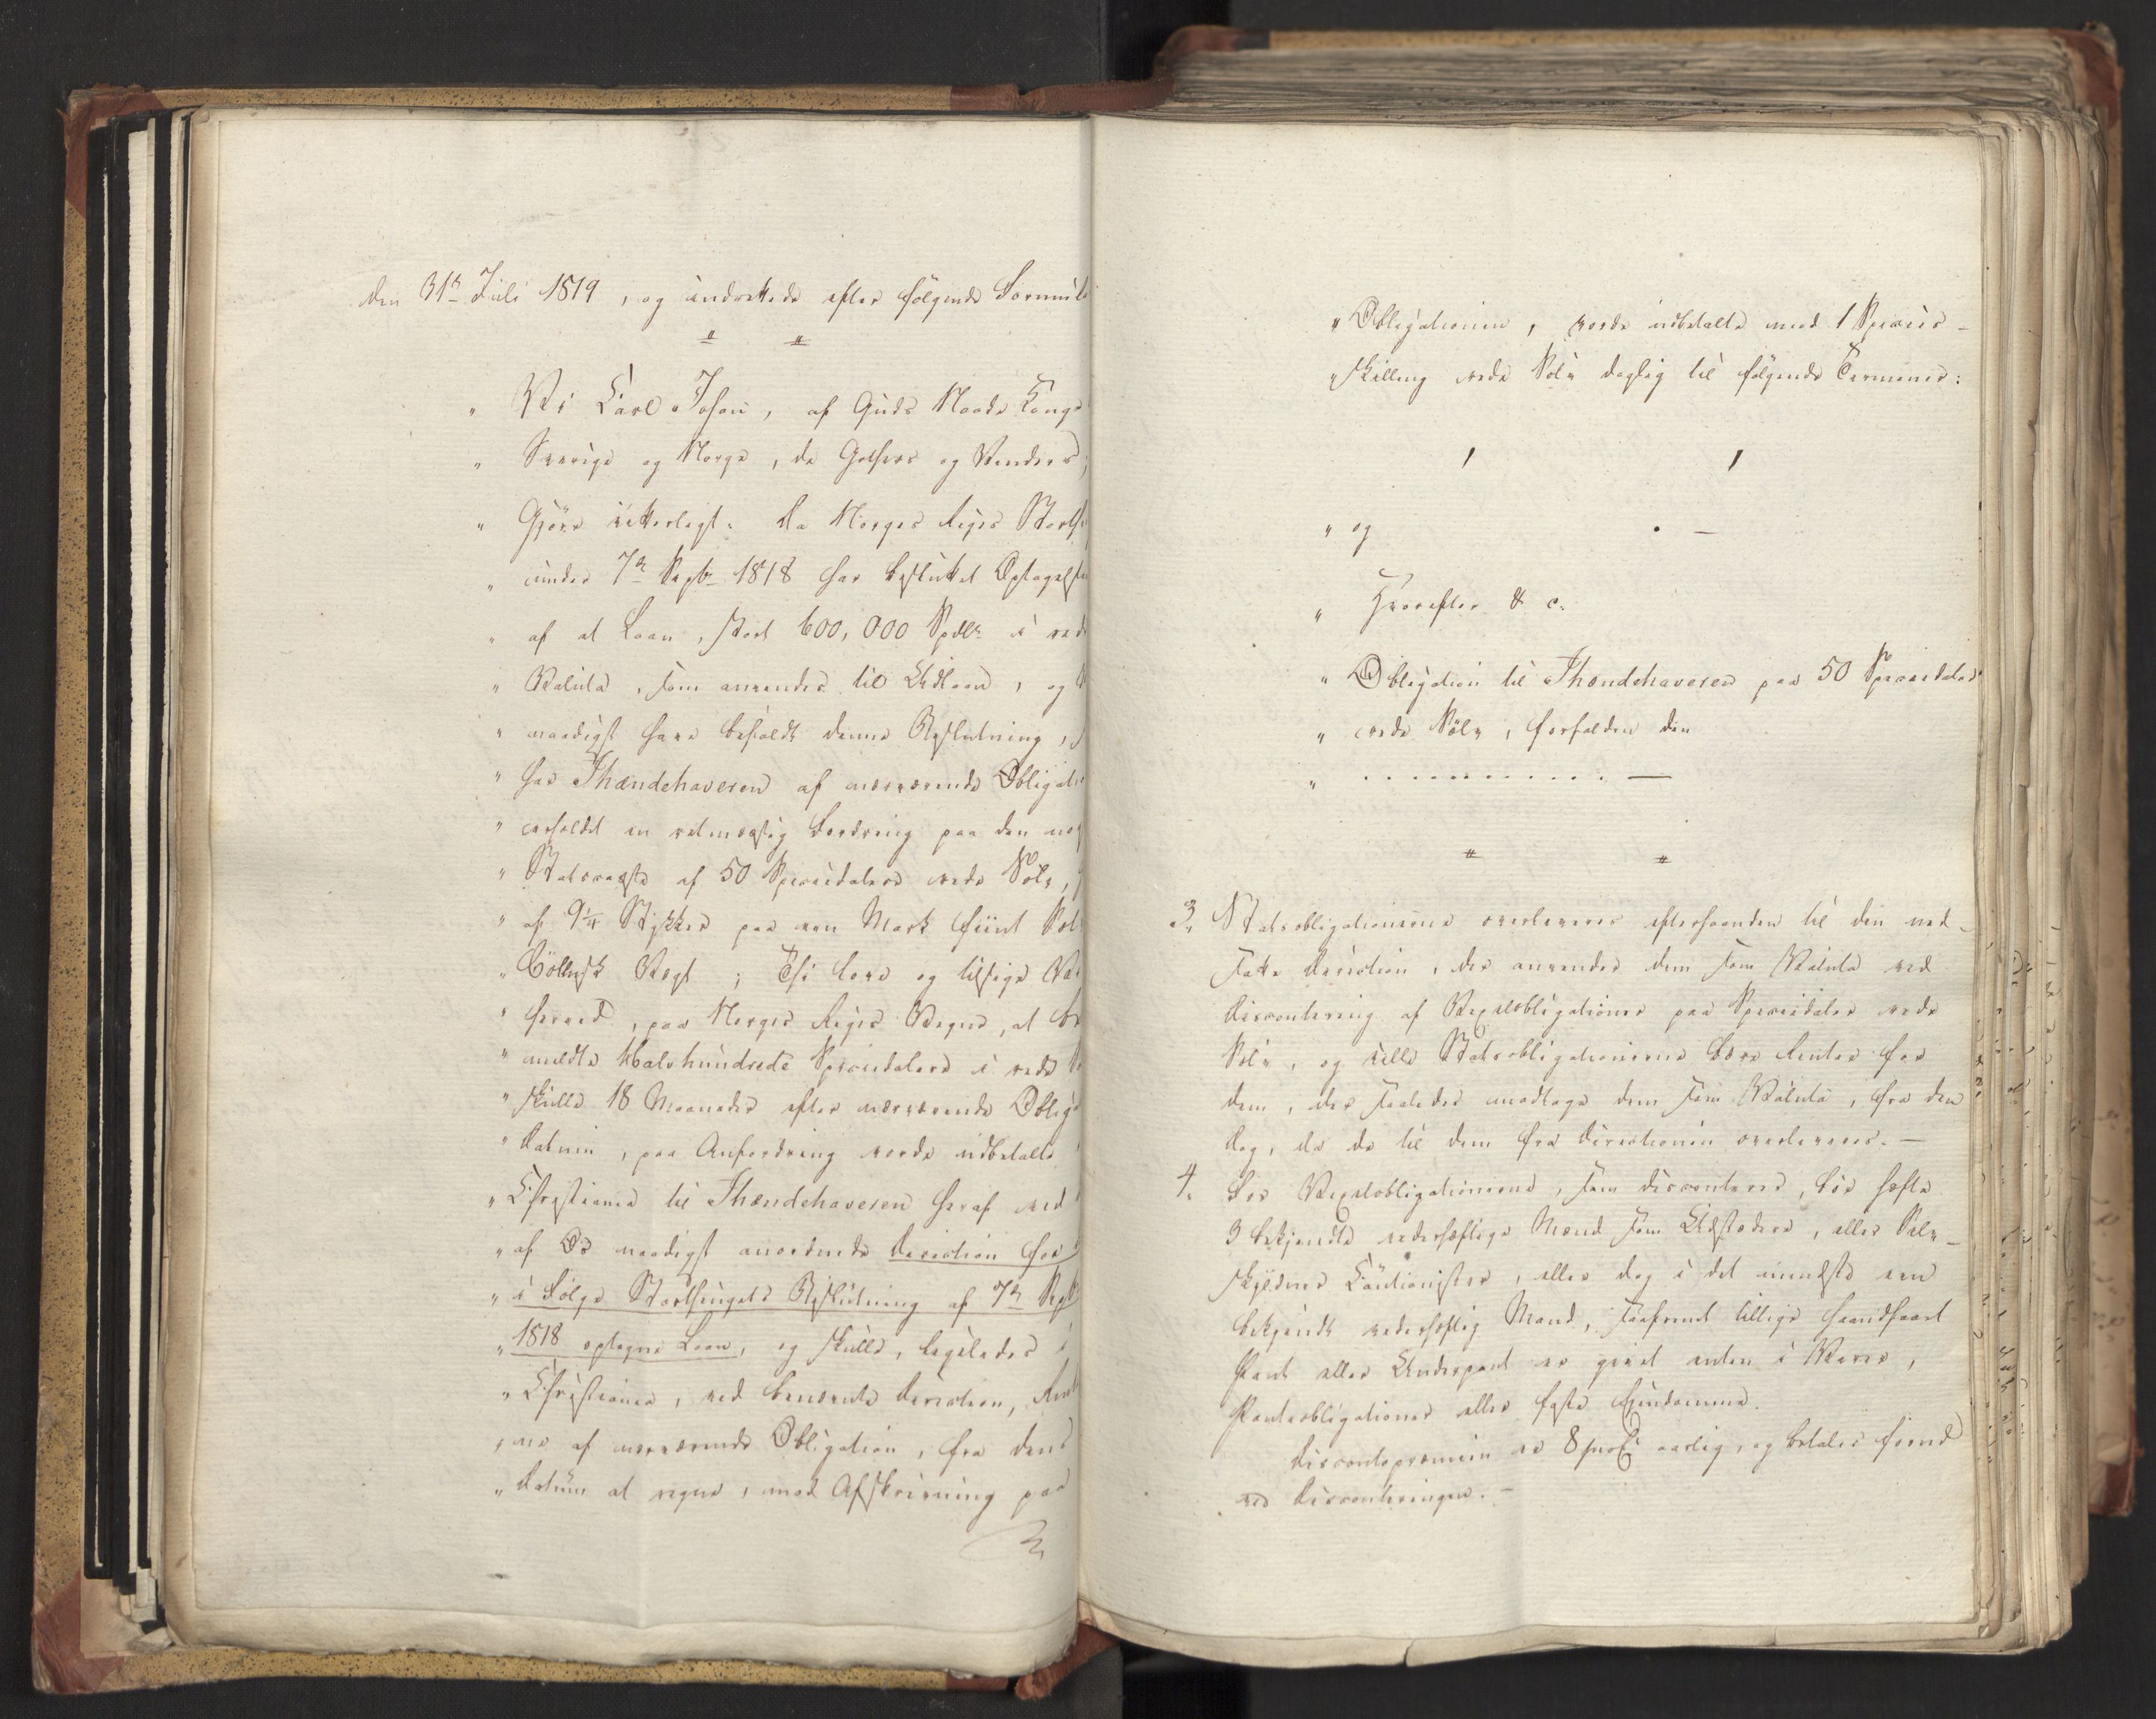 den 31te Juli 1819, og indrettede efter følgende Formul
" "
" Vi Carl Johan, af Guds Naade Konge
" Sverige og Norge, de Gothers og Venders,
" Gjøre vitterligt: Da Norges Riges Storth
" under 7de Septr 1818 har besluttet Optagelsen
" af et Laan, stort 600,000 Spdlr i rede
" Valuta, som anvendes til Udlaan, og
" naadigst have befaldt denne Beslutning,
" har Ihændehaveren af nærværende Obligat
" erholdet en retmæssig Fordring paa den nor
" Statscasse af 50 Speciedalere rede Sølv,
" af 9¼ Stykker paa een Mark fiint Søl
" Cöllnsk Vægt; Thi love og tilsige Vi
" herved, paa Norges Riges Vegne, at be
" meldte Halvhundrede Speciedalere i rede S
" skulle 18 Maaneder efter nærværende Obliga
" Datum, paa Anfordring vorde udbetalte i
" Christiania til Ihændehaveren heraf ved
" af Os naadigst anordnede Direction for
" i Følge Storthingets Beslutning af 7de Septr
" 1818 optagne Laan, og skulle, ligeledes i
" Christiania, ved benævnte Direction, Rent
" ne af nærværende Obligation, fra dens
" Datum at regne, mod Afskrivning paa
" Obligationen, vorde udbetalte med 1 Species-
" skilling rede Sølv daglig til følgende Terminer:
" og
" Hvorefter & c.
" Obligation til Ihændehaveren paa 50 Speciedaler
" rede Sølv, forfalden den
" . . . . . . . . . . . . —
" "
3. Statsobligationerne overleveres efterhaanden til den ned-
satte Direction, der anvender dem som Valuta ved
Discontering af Vexelobligationer paa Speciedaler rede
Sølv, og ville Statsobligationerne bære Renter for
dem, der saaledes modtage dem som Valuta, fra den
Dag, da de til dem fra Directionen overleveres. —
4. For Vexelobligationerne, som disconteres, bør hefte
3 bekjendte vederhæftige Mænd som Udstedere, eller Selv-
skyldner Cautionister, eller dog i det mindste een
bekjendt vederhæftig Mand, saafremt tillige haandfaaet
Pant eller Underpant er givet enten i Varer,
Panteobligationer eller faste Ejendomme.
Discontopræmien er 8 proCt aarlig, og betales forud
ved Disconteringen. —